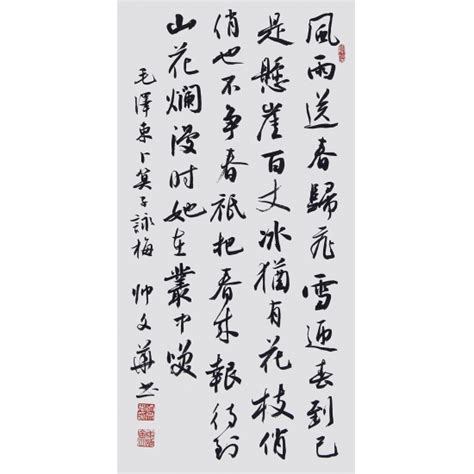 風雨送春歸飛雪迎春到已
是懸崖百丈冰猶有花枝俏
俏也不争春祇把春来報待到
山花爛漫时她在叢中笑
毛澤東卜算子詠梅 帅文书